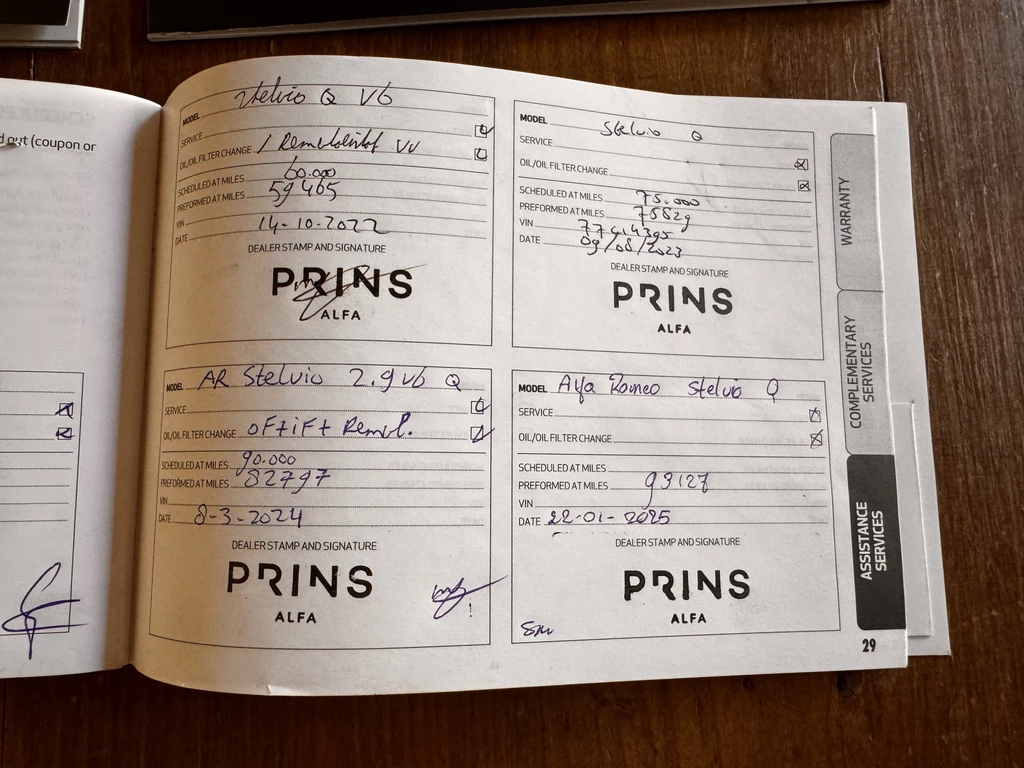 d out (coupon or
MODEL Stelvio Q V6
SERVICE
OIL/OIL FILTER CHANGE / Remvloeistof VV
SCHEDULED AT MILES 60.000
PREFORMED AT MILES 59465
VIN
DATE 14-10-2022
DEALER STAMP AND SIGNATURE
PRINS
ALFA
MODEL Stelvio Q
SERVICE
OIL/OIL FILTER CHANGE
SCHEDULED AT MILES 75.000
PREFORMED AT MILES 75529
VIN 77414395
DATE 09/08/2023
DEALER STAMP AND SIGNATURE
PRINS
ALFA
MODEL AR Stelvio 2.9 V6 Q
SERVICE
OIL/OIL FILTER CHANGE OF+iF+ Remvl.
SCHEDULED AT MILES 90.000
PREFORMED AT MILES 82797
VIN
DATE 8-3-2024
DEALER STAMP AND SIGNATURE
PRINS
ALFA
MODEL Alfa Romeo Stelvio Q
SERVICE
OIL/OIL FILTER CHANGE
SCHEDULED AT MILES
PREFORMED AT MILES 93127
VIN
DATE 22-01-2025
DEALER STAMP AND SIGNATURE
PRINS
ALFA
WARRANTY
COMPLEMENTARY
SERVICES
ASSISTANCE
SERVICES
29